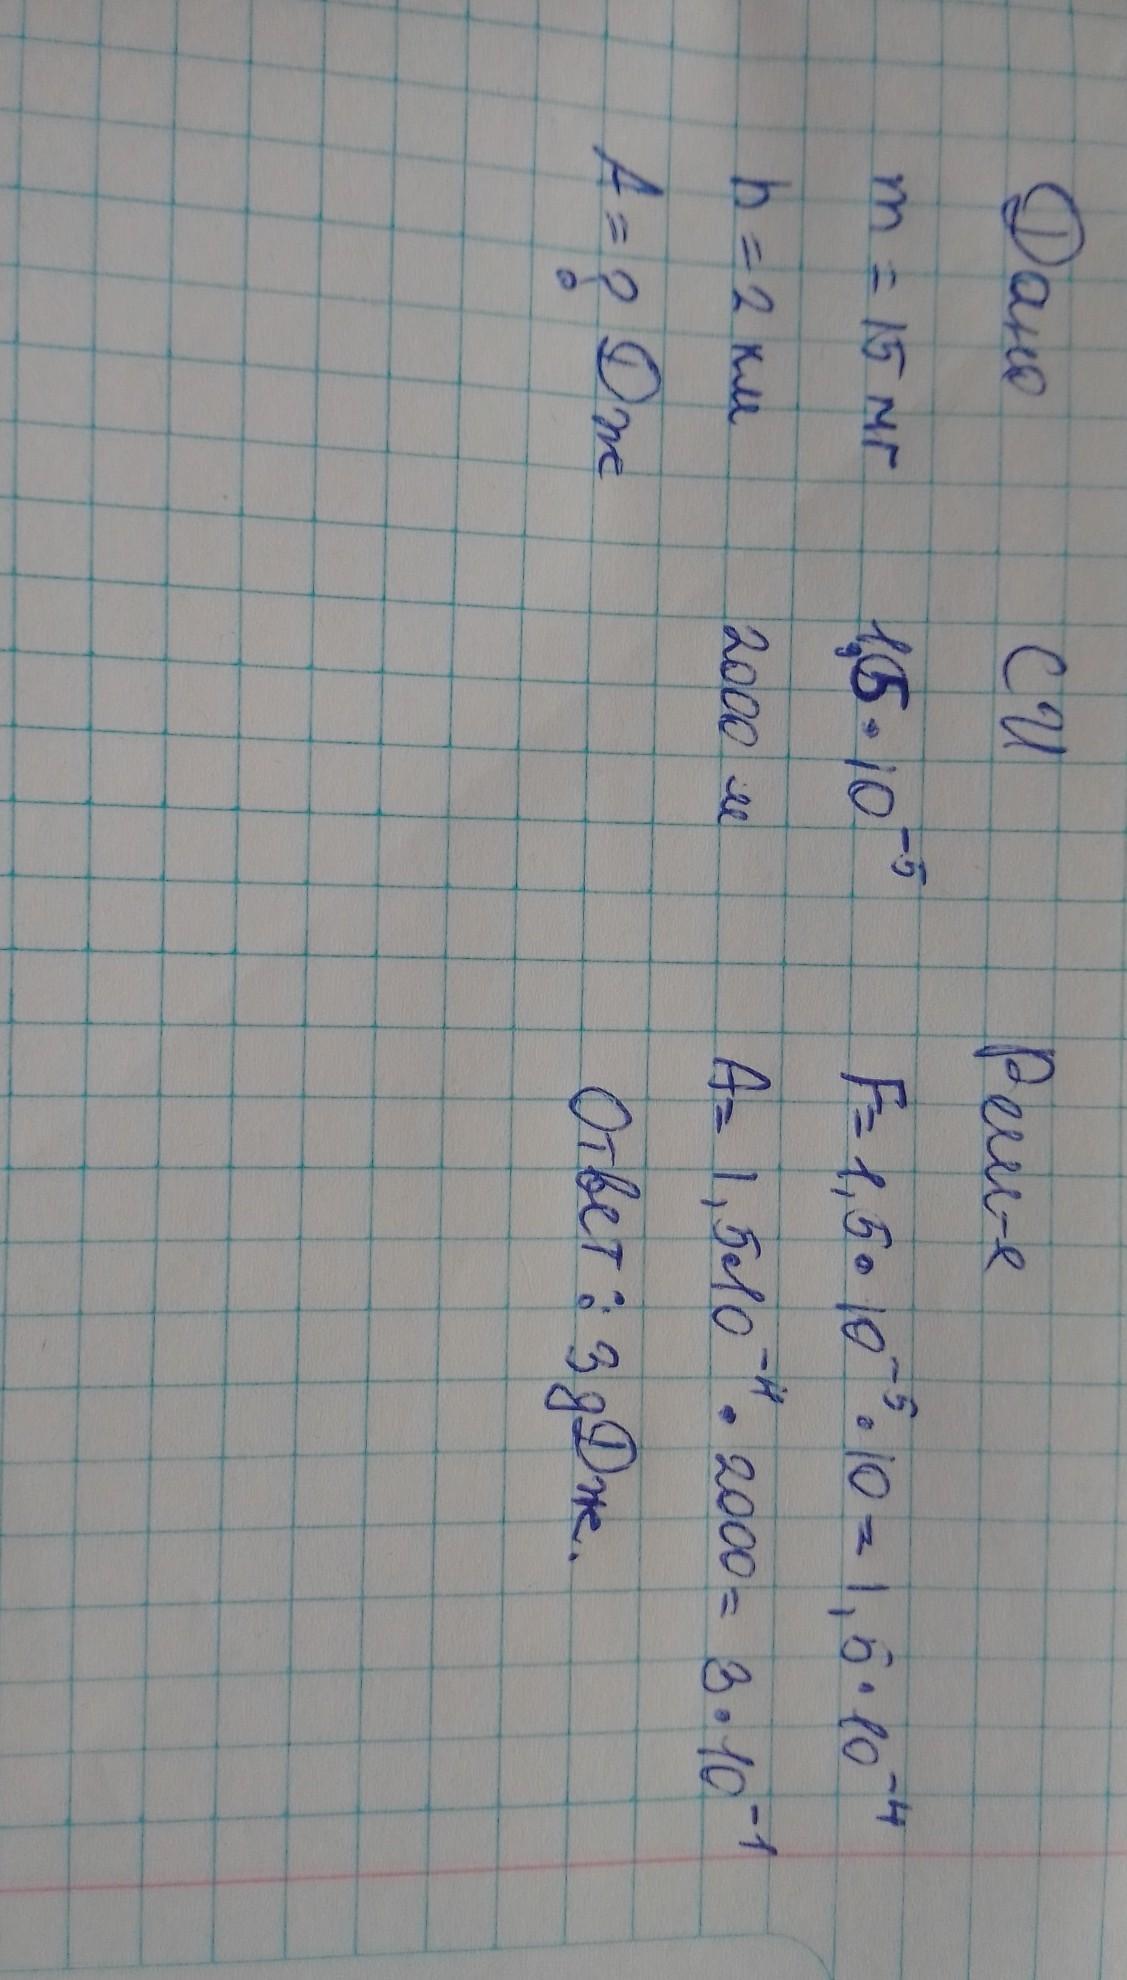 Дано СИ Реш-е
m = 15 мг 1,5 • 10⁻⁵ F = 1,5 • 10⁻⁵ • 10 = 1,5 • 10⁻⁴
h = 2 км 2000 м A = 1,5•10⁻⁴ • 2000 = 3 • 10⁻¹
A = ? Дж Ответ : 3 дДж.